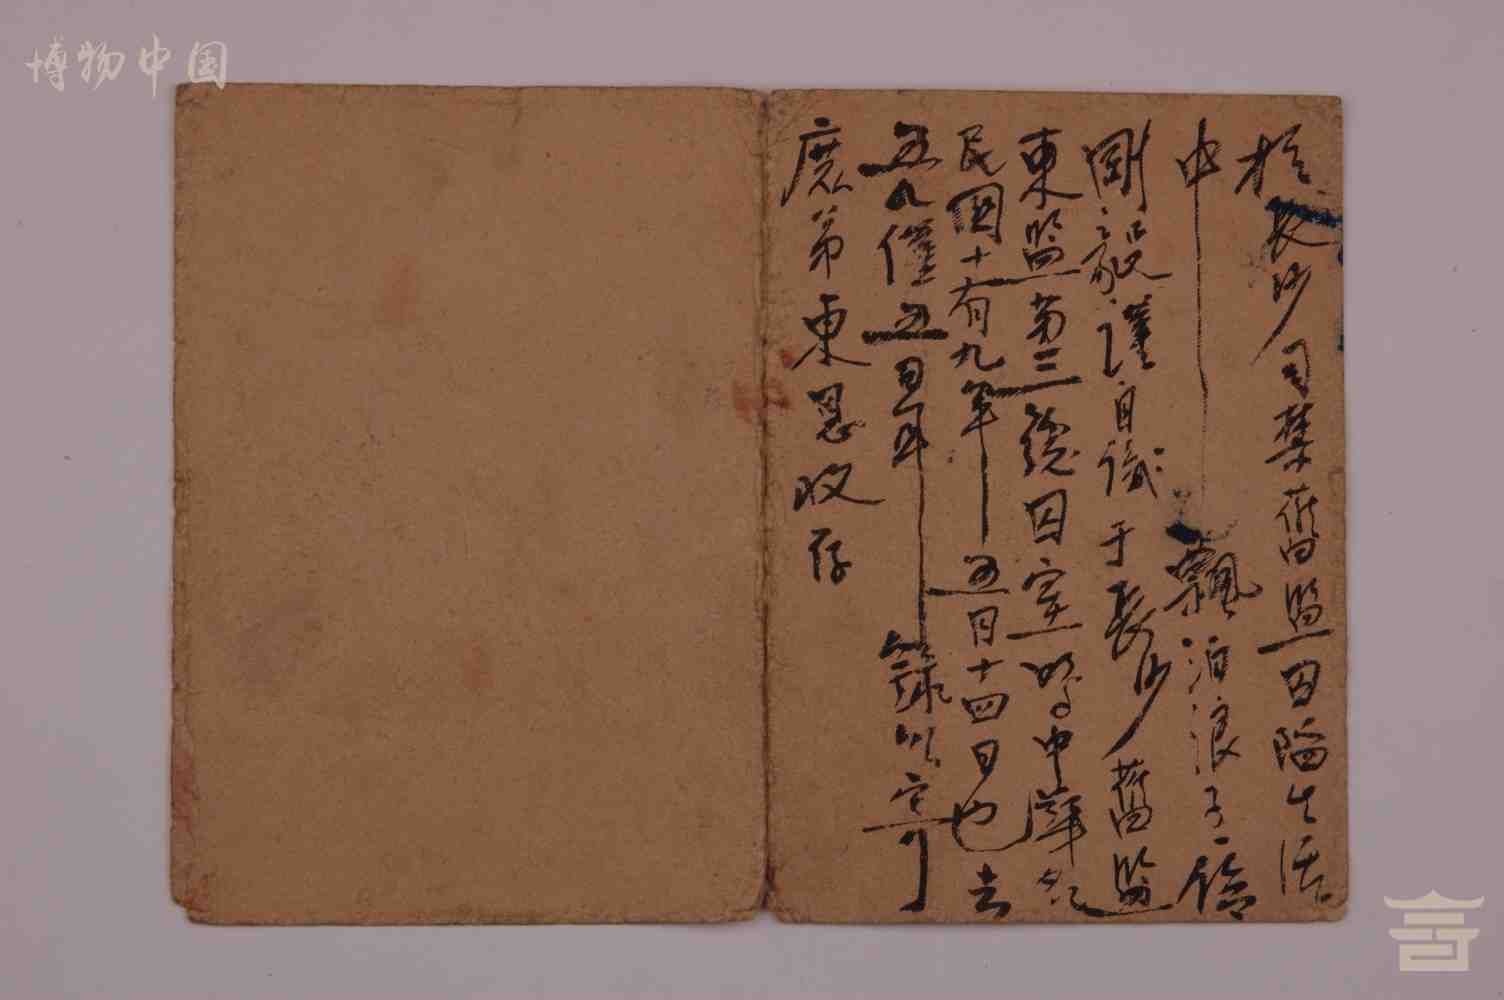 博物中国
於長沙司禁舊監囚陷生活
中 飄泊浪子
剛毅謹自識于長沙舊監
東監第三號囚室時中華
民國十有九年 五月十四日也去
五九僅五日耳 錄以寄
庶弟東恩收存